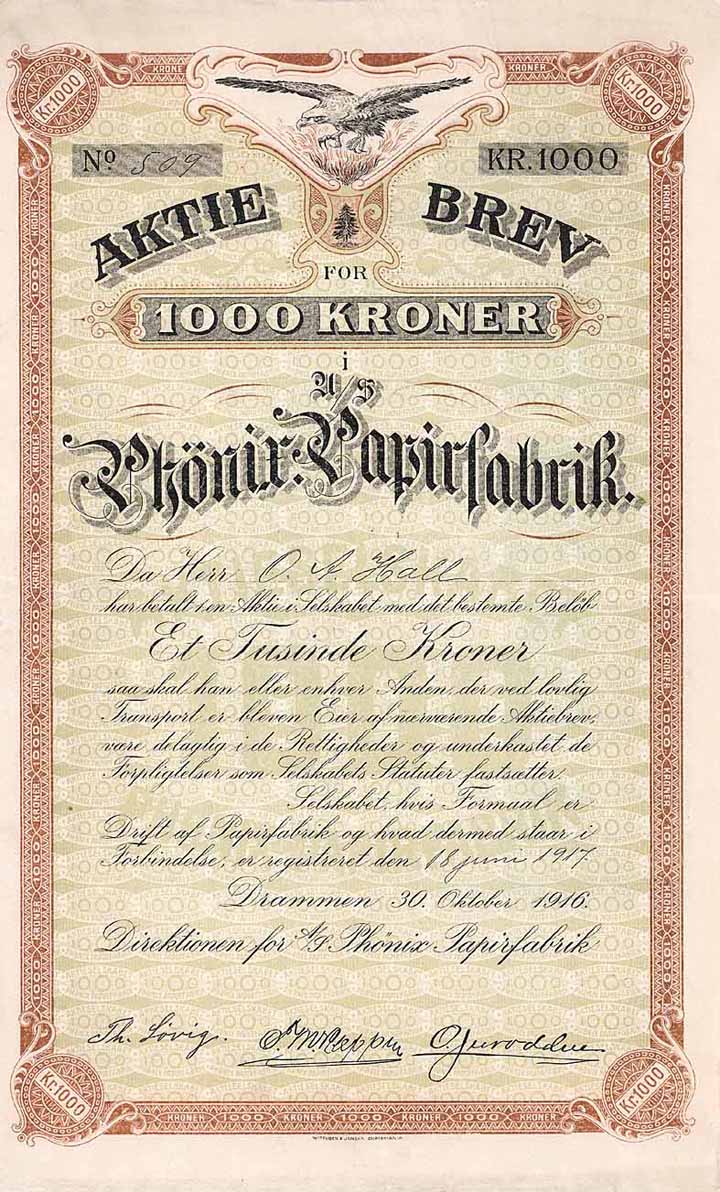 Kr. 1000
Kr. 1000
KRONER
KRONER
Nº 509
KR. 1000
AKTIE BREV
FOR
1000 KRONER
i
A/S
Phönix Papirfabrik.
Da Herr O. A. Hall
har betalt i en Aktie i Selskabet med det bestemte Belöb
Et Tusinde Kroner
saa skal han eller enhver Anden, der ved lovlig
Transport er bleven Eier af nærværende Aktiebrev,
være delagtig i de Rettigheder og underkastet de
Forpligtelser som Selskabets Statuter fastsætter.
Selskabet, hvis Formaal er
Drift af Papirfabrik og hvad dermed staar i
Forbindelse, er registreret den 18 juni 1917.
Drammen 30. Oktober 1916.
Direktionen for A/S. Phönix Papirfabrik
Th. Lövig.
Kr. 1000
Kr. 1000
KRONER 1000 KRONER 1000 KRONER 1000 KRONER